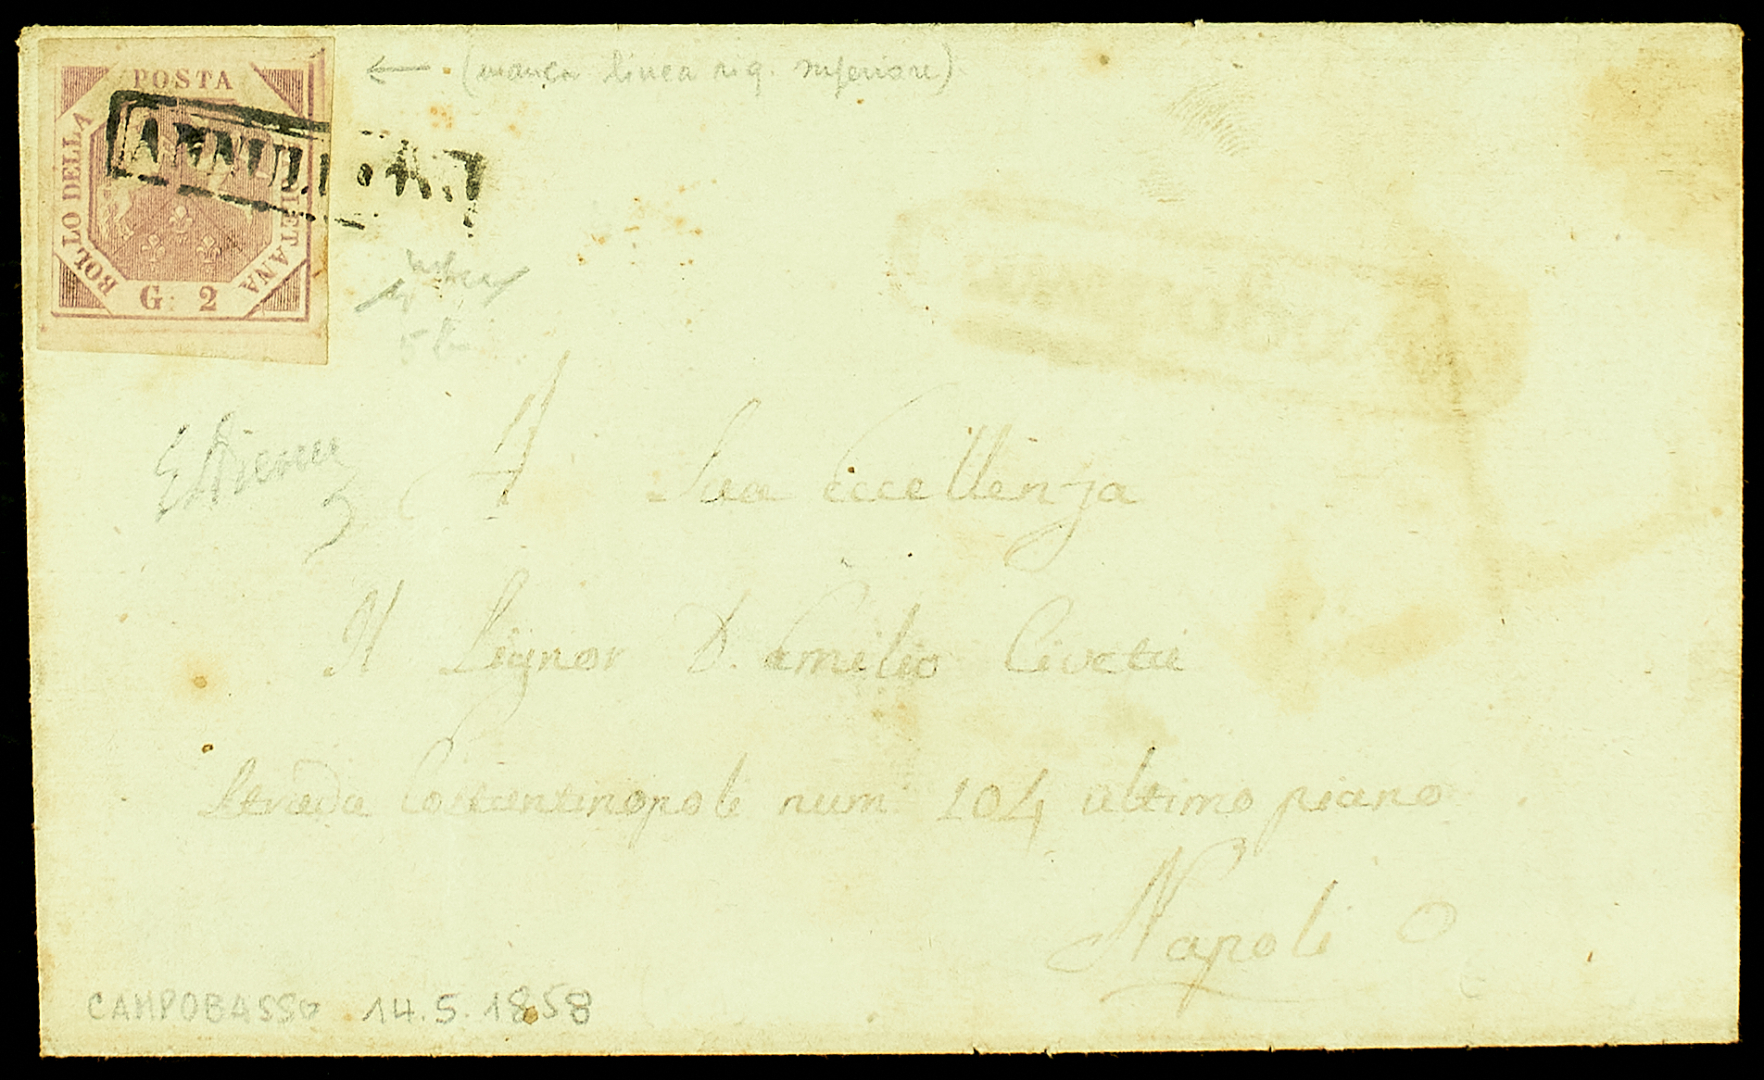 POSTA
BOLLO DELLA
G. 2
ANNULLAT
← (manca linea riq. inferiore)
A Sua Eccellenza
Il Signor D. Emilio Civeta
Strada Costantinopoli num 104 ultimo piano
Napoli
CAMPOBASSO 14.5.1858